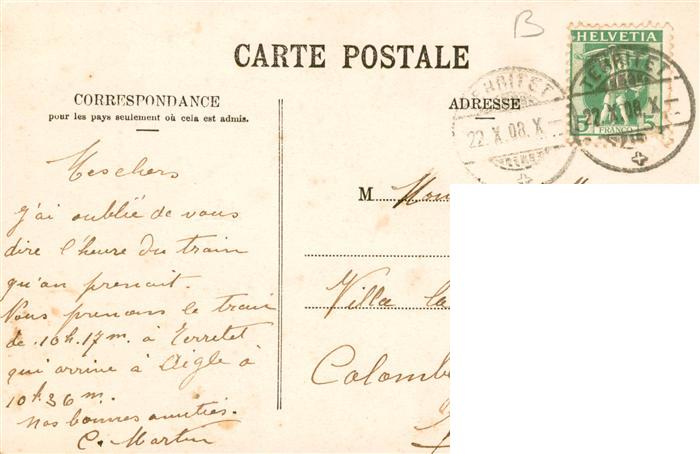 B
HELVETIA
CARTE POSTALE
TERRITET
TERRITET
CORRESPONDANCE
pour les pays seulement où cela est admis.
ADRESSE
22. X. 08. X
22. X. 08. X
5 FRANCO 5
Mes chers
j'ai oublié de vous
dire l'heure du train
qu'on prenait.
Nous prenons le train
de 10h.17m. à Territet
qui arrive à Aigle à
10h36m.
nos bonnes amitiés.
C. Martin
M
Villa la
Colomb